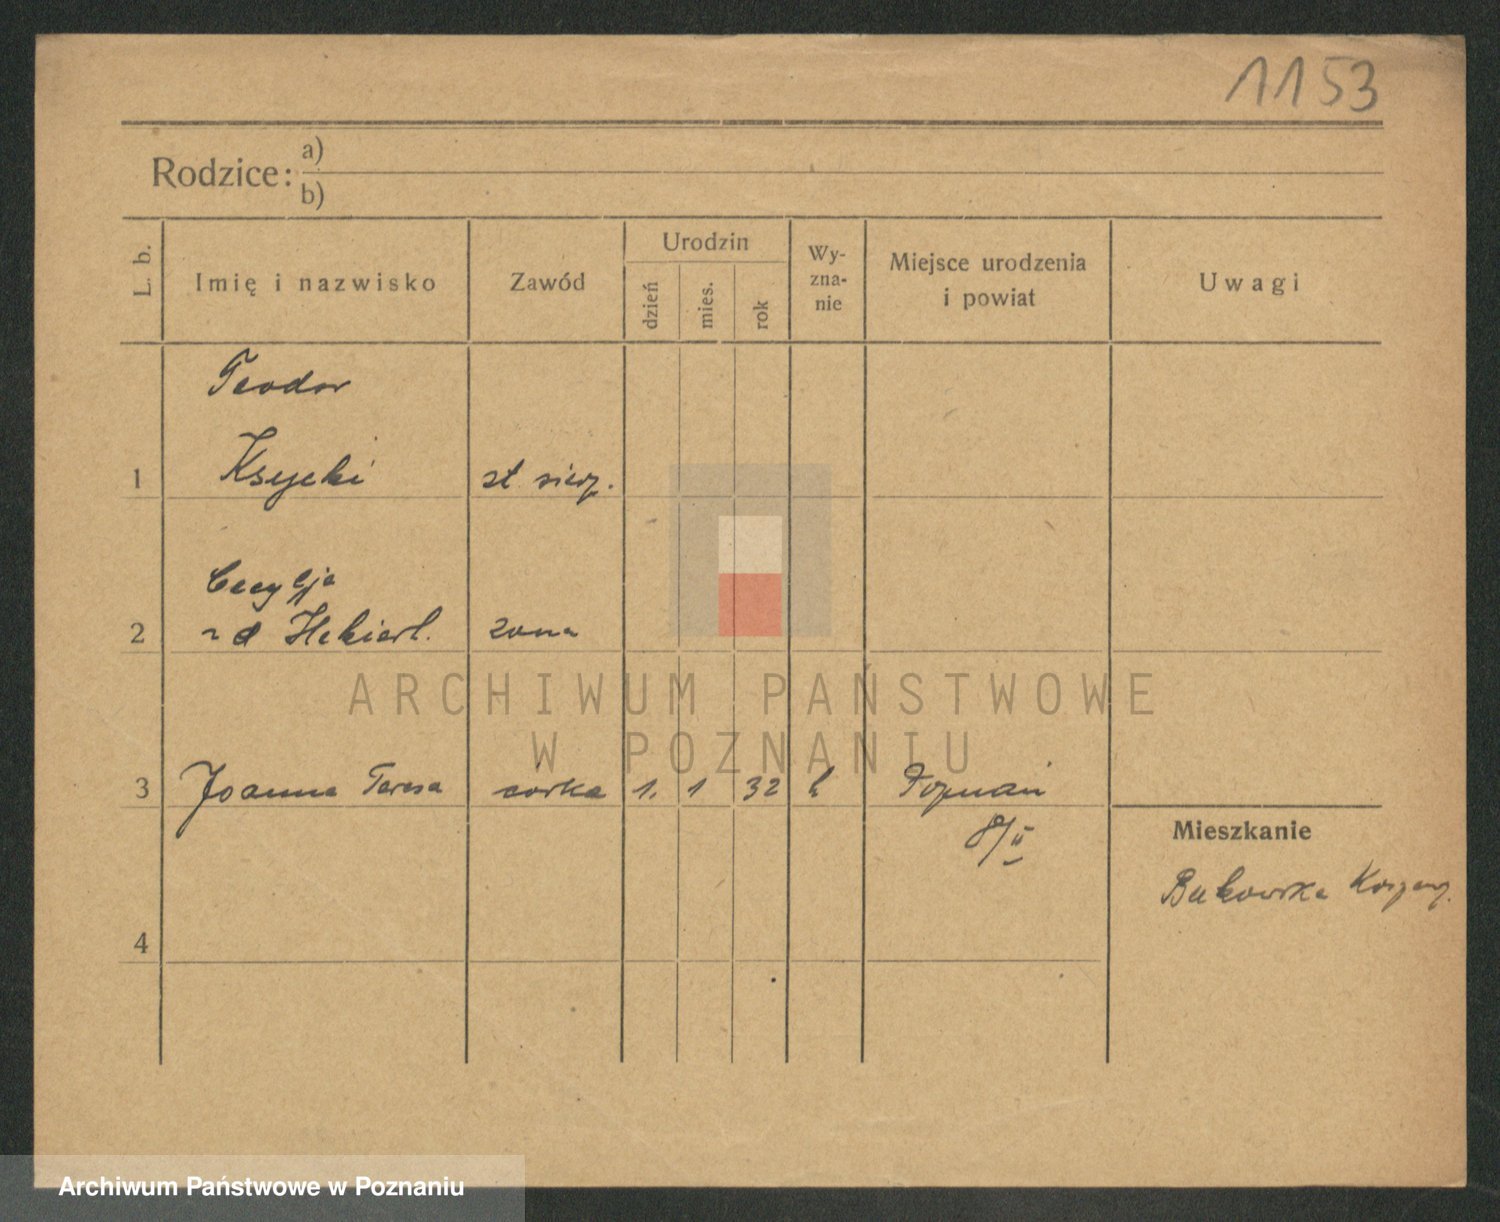 1153
Rodzice: a)
b)
L. b.
Imię i nazwisko
Zawód
Urodzin
dzień
mies.
rok
Wy-
zna-
nie
Miejsce urodzenia
i powiat
Uwagi
Teodor
1 Ksycki st. sierż.
Cecylja
2 zd Hekiert. żona
3 Joanna Teresa córka 1. 1 32 k Poznań
8/II
Mieszkanie
Bukowska Koszary.
4
ARCHIWUM PAŃSTWOWE
W POZNANIU
Archiwum Państwowe w Poznaniu